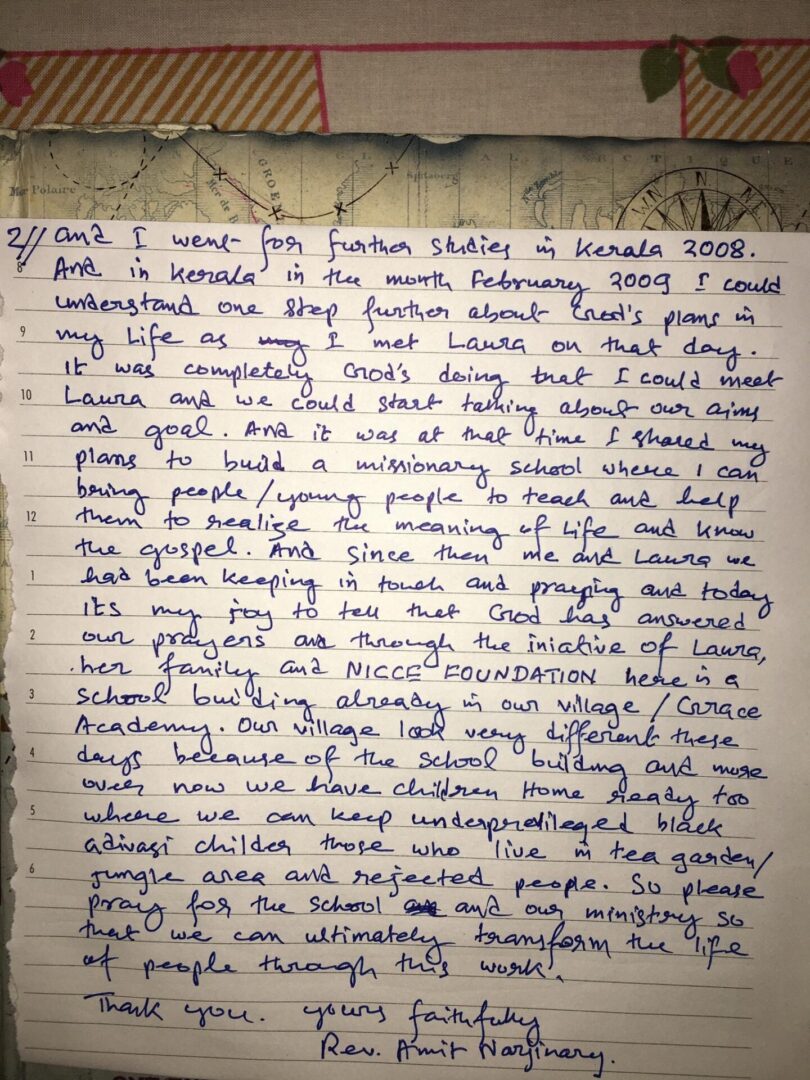 Mer Polaire
GROEN
Mer de
Spitzberg
CTIQUE
N
2// and I went for further studies in Kerala 2008.
8 And in Kerala in the month February 2009 I could
understand one step further about God's plans in
9 my Life as my I met Laura on that day.
It was completely God's doing that I could meet
10 Laura and we could start talking about our aims
and goal. And it was at that time I shared my
11 plans to build a missionary school where I can
bring people/young people to teach and help
12 them to realize the meaning of Life and know
the gospel. And since then me and Laura we
1 had been keeping in touch and praying and today
its my joy to tell that God has answered
2 our prayers and through the iniative of Laura,
her family and NICCE FOUNDATION here is a
3 school building already in our village / Grace
Academy. Our village look very different these
4 days because of the school building and more
over now we have children Home ready too
5 where we can keep underpreilieged black
adivasi childer those who live in tea garden/
6 jungle area and rejected people. So please
pray for the school and our ministry so
that we can ultimately transform the life
of people through this work.
Thank you. yours faithfully
Rev. Amit Narjinary.